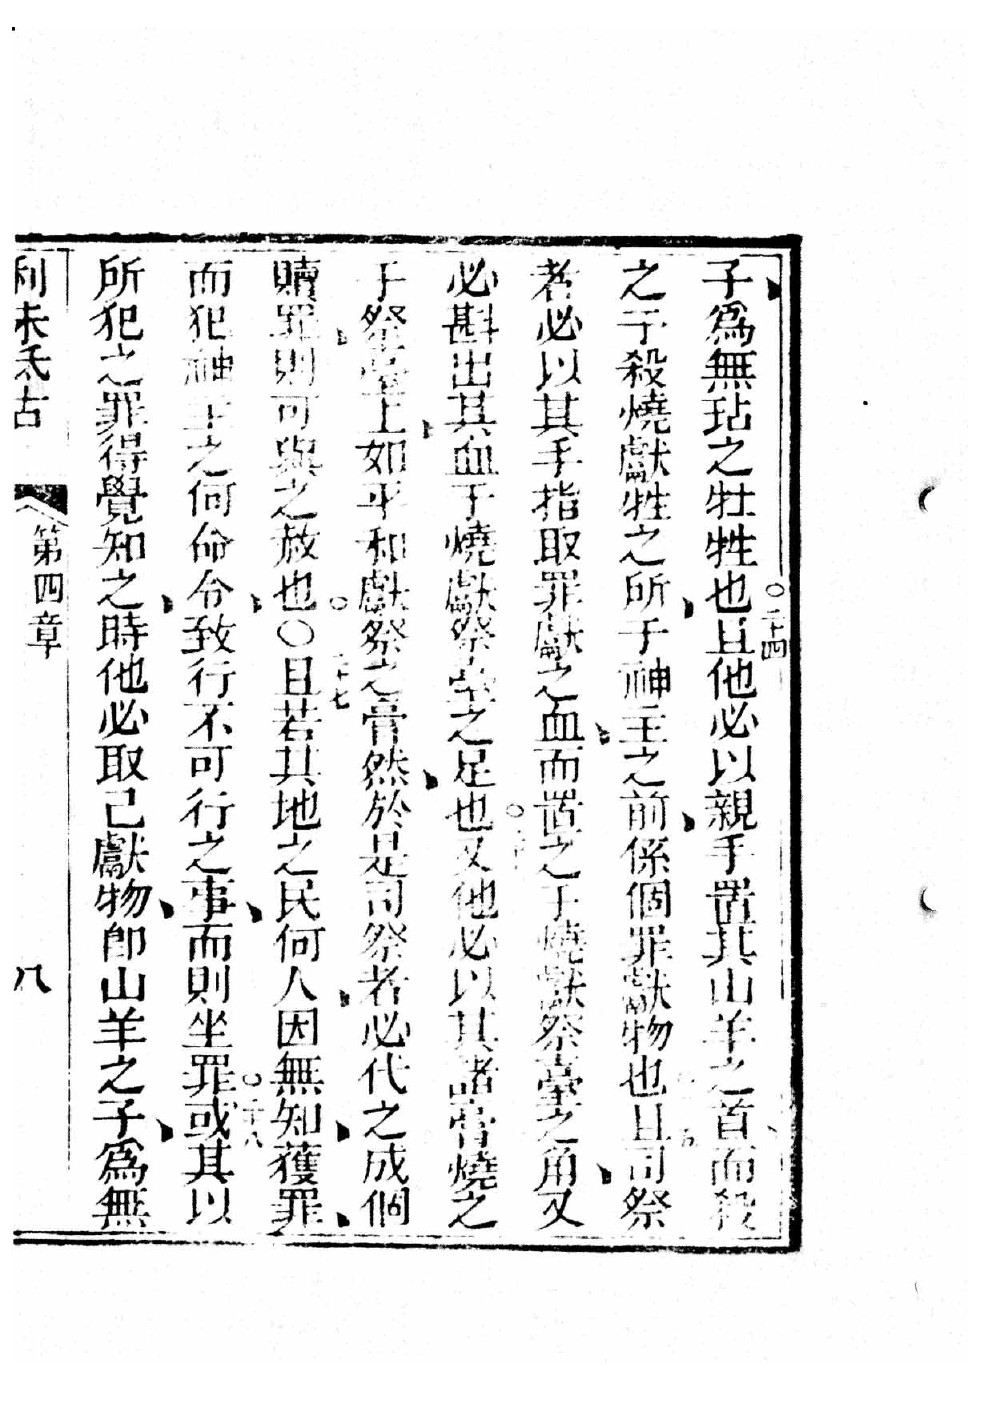 子爲無玷之牡牲也○二十四且他必以親手置其山羊之首而殺
之于殺燒獻牲之所于神主之前係個罪獻物也且司祭
者必以其手指取罪獻之血而置之于燒獻祭臺之角又
必斟出其血于燒獻祭臺之足也○又他必以其諸膏燒之
于祭臺上如平和獻祭之膏然於是司祭者必代之成個
贖罪則可與之赦也○○十七且若其地之民何人因無知獲罪
而犯神主之何命令致行不可行之事而則坐罪○二十八或其以
所犯之罪得覺知之時他必取己獻物卽山羊之子爲無
利未氏古
第四章
八